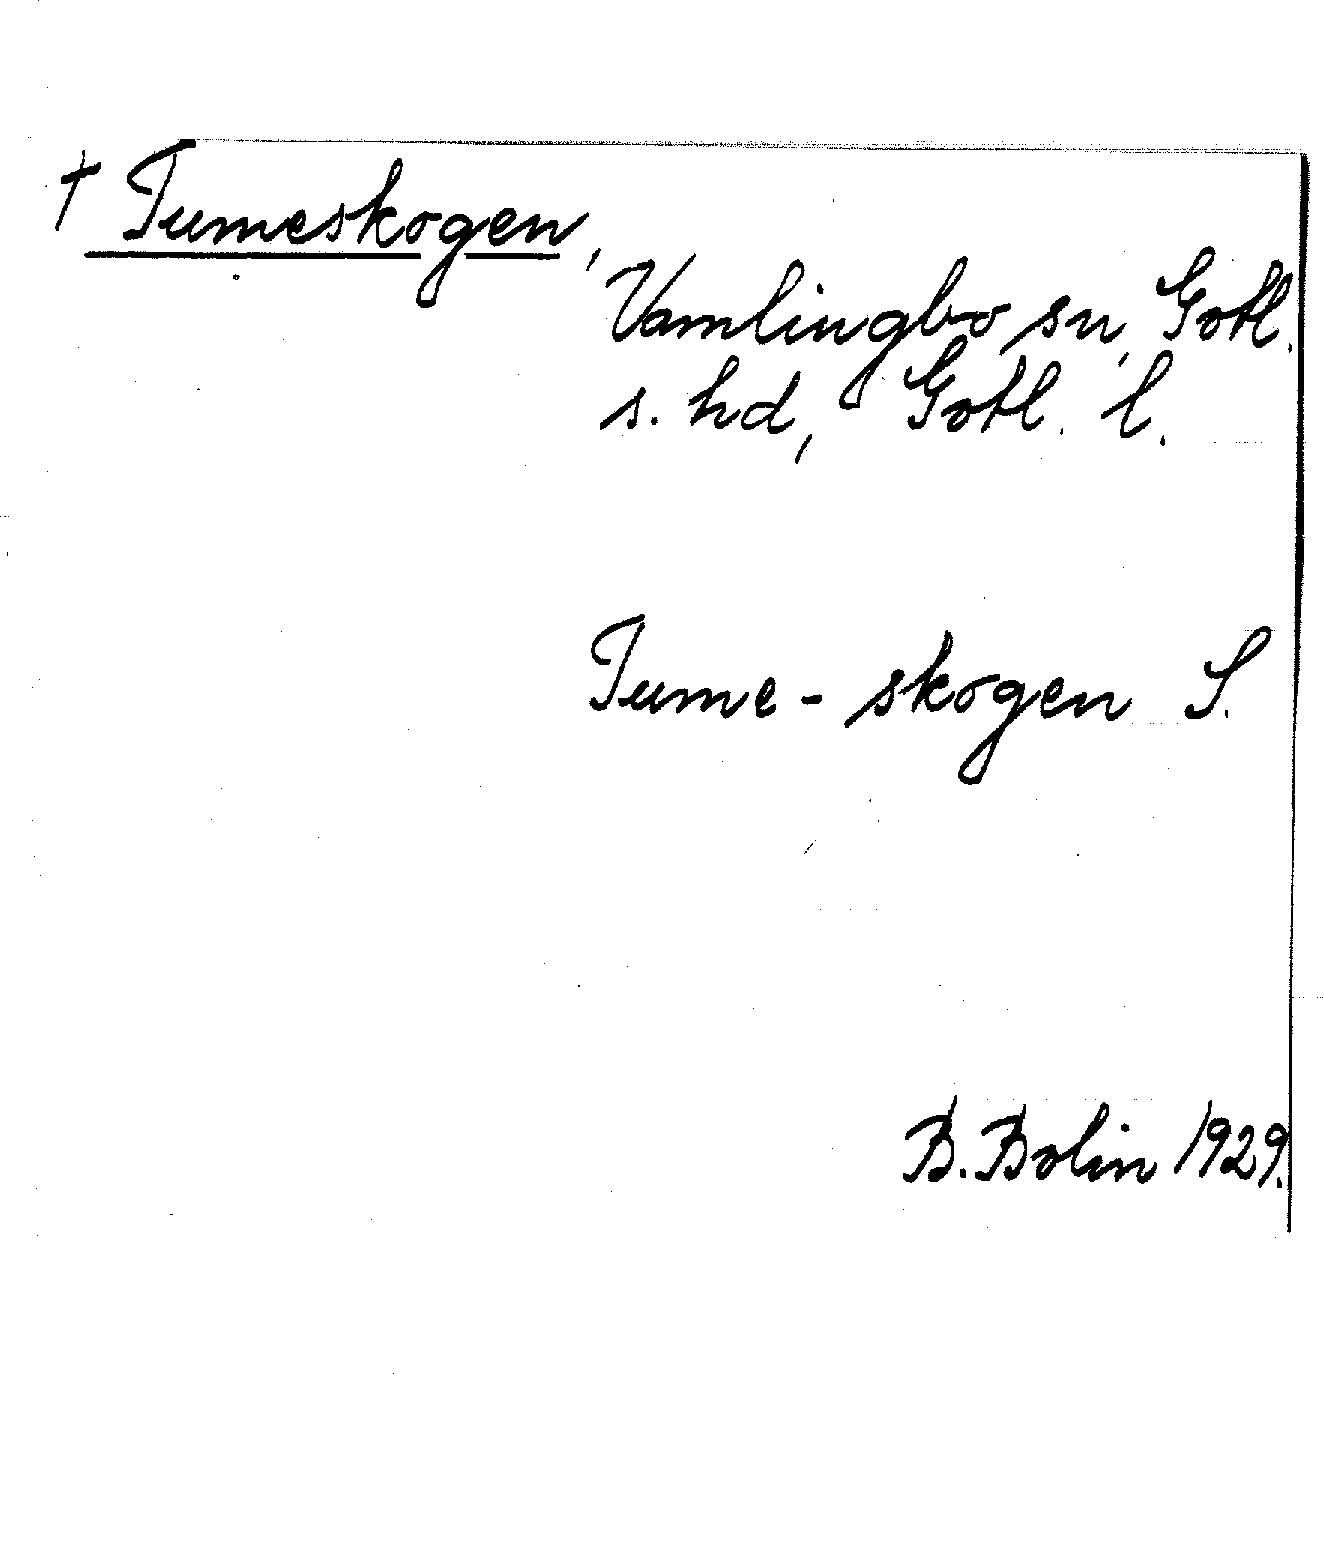 † Tumeskogen,
Vamlingbo sn, Gotl.
s. hd, Gotl. l.
Tume - skogen S.
B. Bolin 1929.